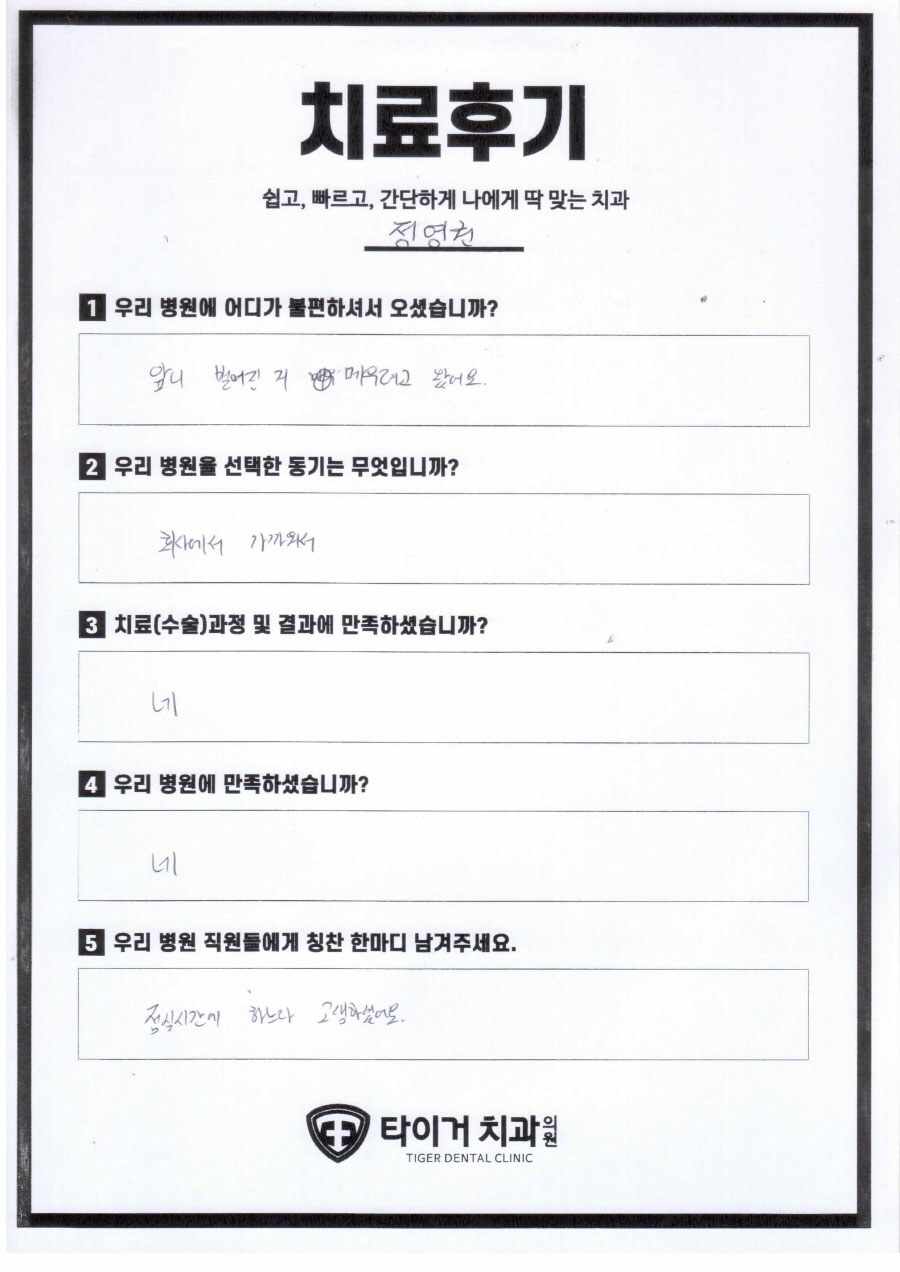 치료후기
쉽고, 빠르고, 간단하게 나에게 딱 맞는 치과
정영권
1 우리 병원에 어디가 불편하셔서 오셨습니까?
앞니 벌어진 거 메우려고 왔어요.
2 우리 병원을 선택한 동기는 무엇입니까?
회사에서 가까와서
3 치료(수술)과정 및 결과에 만족하셨습니까?
네
4 우리 병원에 만족하셨습니까?
네
5 우리 병원 직원들에게 칭찬 한마디 남겨주세요.
점심시간에 하느다 고생하셨어요.
타이거 치과의원
TIGER DENTAL CLINIC